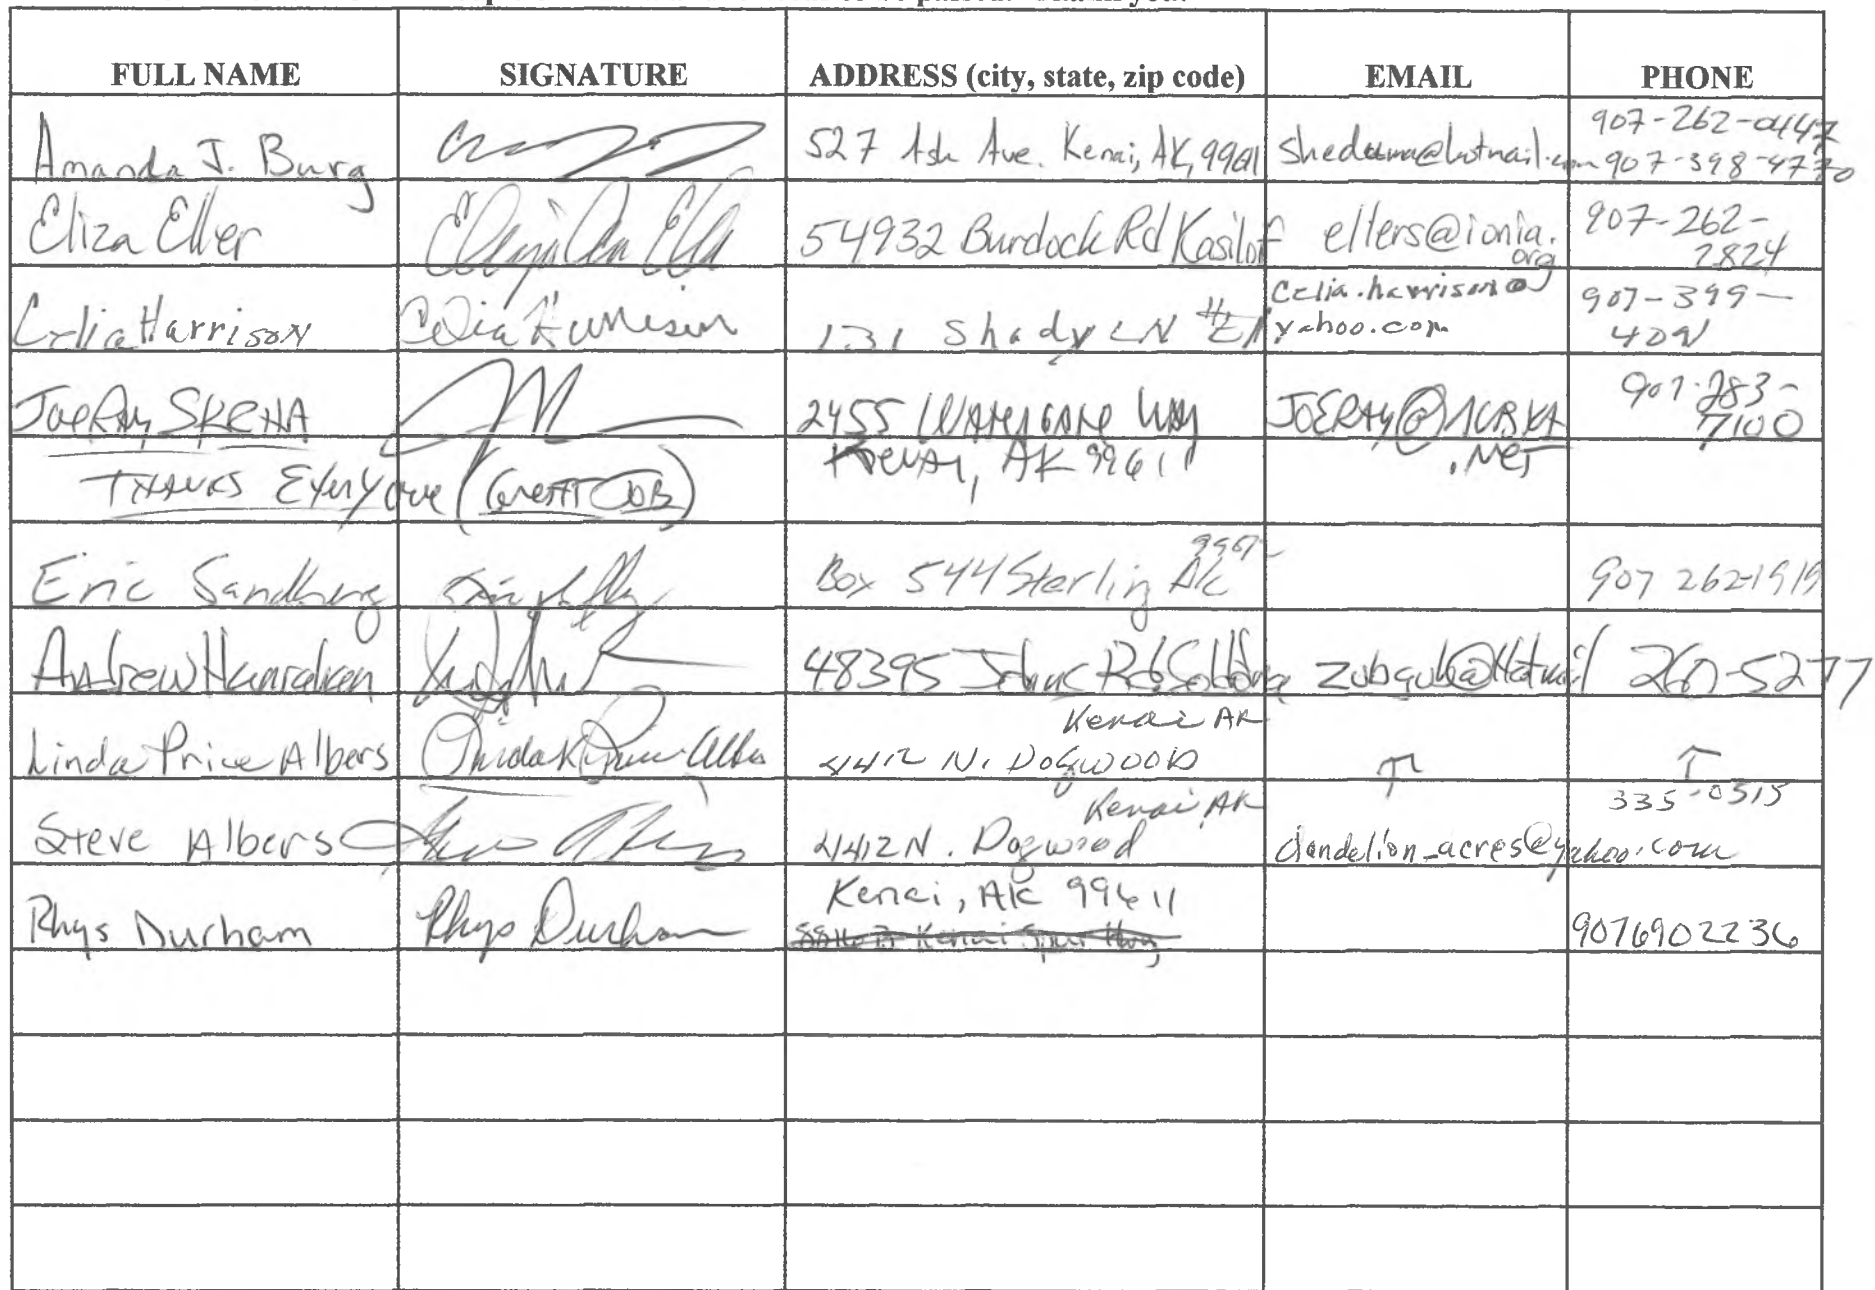 FULL NAME SIGNATURE ADDRESS (city, state, zip code) EMAIL PHONE
Amanda J. Burg 527 Ash Ave. Kenai, AK, 99611 907-262-0447
907-398-4770
Eliza Eller 54932 Burdock Rd Kasilof ellers@ionia.org 907-262-2824
Celia Harrison Celia Harrison 131 Shady LN celia.harrison@yahoo.com 907-399-
JoeRay SKRHA 2455 Watergate Way
Kenai, AK 99611 907-283-7100
THANKS Everyone (GREAT JOB)
Eric Sandberg Box 544 Sterling AK 907 262-1919
Andrew Hanrahan 48395 Rd. 260-5277
Linda Price Albers Kenai AK
412 N. DOGWOOD ↑ ↑
Steve Albers Kenai, AK
412 N. Dogwood dandelion_acres@yahoo.com 335-0515
Rhys Durham Rhys Durham Kenai, AK 99611
Kenai Spur Hwy 9076902236